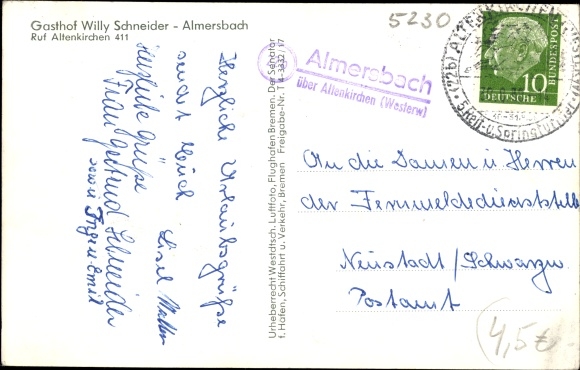 Gasthof Willy Schneider - Almersbach
Ruf Altenkirchen 411
5230
Herzliche Urlaubsgrüße
sendet Euch Lisel
Herzliche Grüße
Frau Gertrud Schneider
sowie
Urheberrecht Westdtsch. Luftfoto, Flughafen Bremen. Der Senator
f. Häfen, Schiffahrt u. Verkehr, Bremen Freigabe-Nr.
Almersbach
über Altenkirchen (Westerw)
ALTENKIRCHEN
5.Reit-u.Springturnier
DEUTSCHE
BUNDESPOST
10
An die Damen u. Herren
der Fernmeldedienststelle
Neustadt/Schwarzw.
Postamt
4,5€